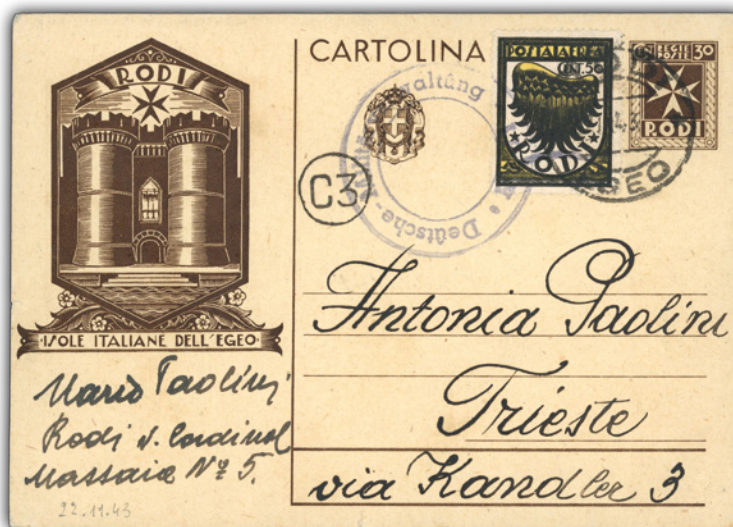 RODI
ISOLE ITALIANE DELL'EGEO
Mario Paolini
Rodi v. Cardinal
Massaia Nº 5.
22.11.43
CARTOLINA
C3
Deutsche-
POSTA AEREA
CENT. 50
RODI
CENT REGIE POSTE 30
RODI
EGEO
Antonia Paolini
Trieste
via Kandler 3